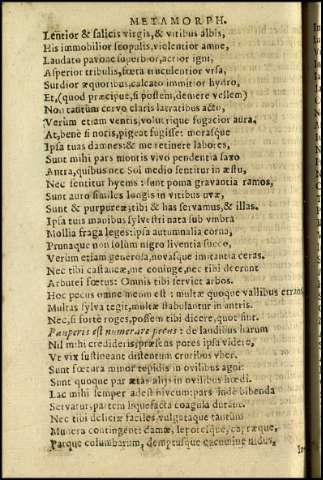 METAMORPH.
Lentior & salicis virgis, & vitibus albis,
His immobilior scopulis, violentior amne,
Laudato pavone superbior, acrior igni,
Asperior tribulis, fœta truculentior vrsa,
Surdior æquoribus, calcato immitior hydro,
Et, (quod præcipuè, si possem, demere vellem)
Non tantùm cervo claris latratibus acto,
Verùm etiam ventis, volucrique fugacior aura.
At, benè si noris, pigeat fugisse: morasque
Ipsa tuas damnes: & me retinere labores,
Sunt mihi pars montis vivo pendentia saxo
Antra, quibus nec Sol medio sentitur in æstu,
Nec sentitur hyems: sunt poma gravantia ramos,
Sunt auro similes longis in vitibus uvæ,
Sunt & purpureæ: tibi & has servamus, & illas.
Ipsa tuis manibus sylvestri nata sub vmbra
Mollia fraga leges: ipsa autumnalia corna,
Prunaque non solùm nigro liventia succo,
Verum etiam generosa, novasque imitantia ceras.
Nec tibi castaneæ, me coniuge, nec tibi deerunt
Arbutei fœtus: Omnis tibi serviet arbos.
Hoc pecus omne meum est: multæ quoque vallibus errant
Multas sylva tegit, multæ stabulantur in antris.
Nec, si fortè roges, possem tibi dicere, quot sint.
Pauperis est numerare pecus: de laudibus harum
Nil mihi credideris: præsens potes ipsa videre,
Vt vix sustineant distentum cruribus vber.
Sunt fœtura minor tepidis in ovilibus agni:
Sunt quoque par ætas alijs in ovilibus hœdi.
Lac mihi semper adest niveum: pars inde bibenda
Servatur, partem liquefacta coagula durant.
Nec tibi deliciæ faciles, vulgataque tantùm
Munera contingent: damæ, leporesque, capræque,
Parque columbarum, demptusque cacumine nidus,